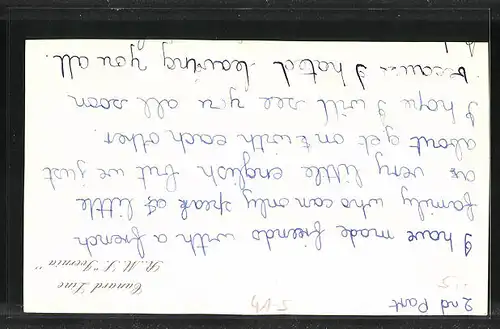 2nd Part
Cunard Line
R.M.S. "Ivernia"
I have made friends with a french
family who can only speak as little
as very little english but we just
about get on & with each other.
I hope I will see you all soon
because I hated leaving you all.